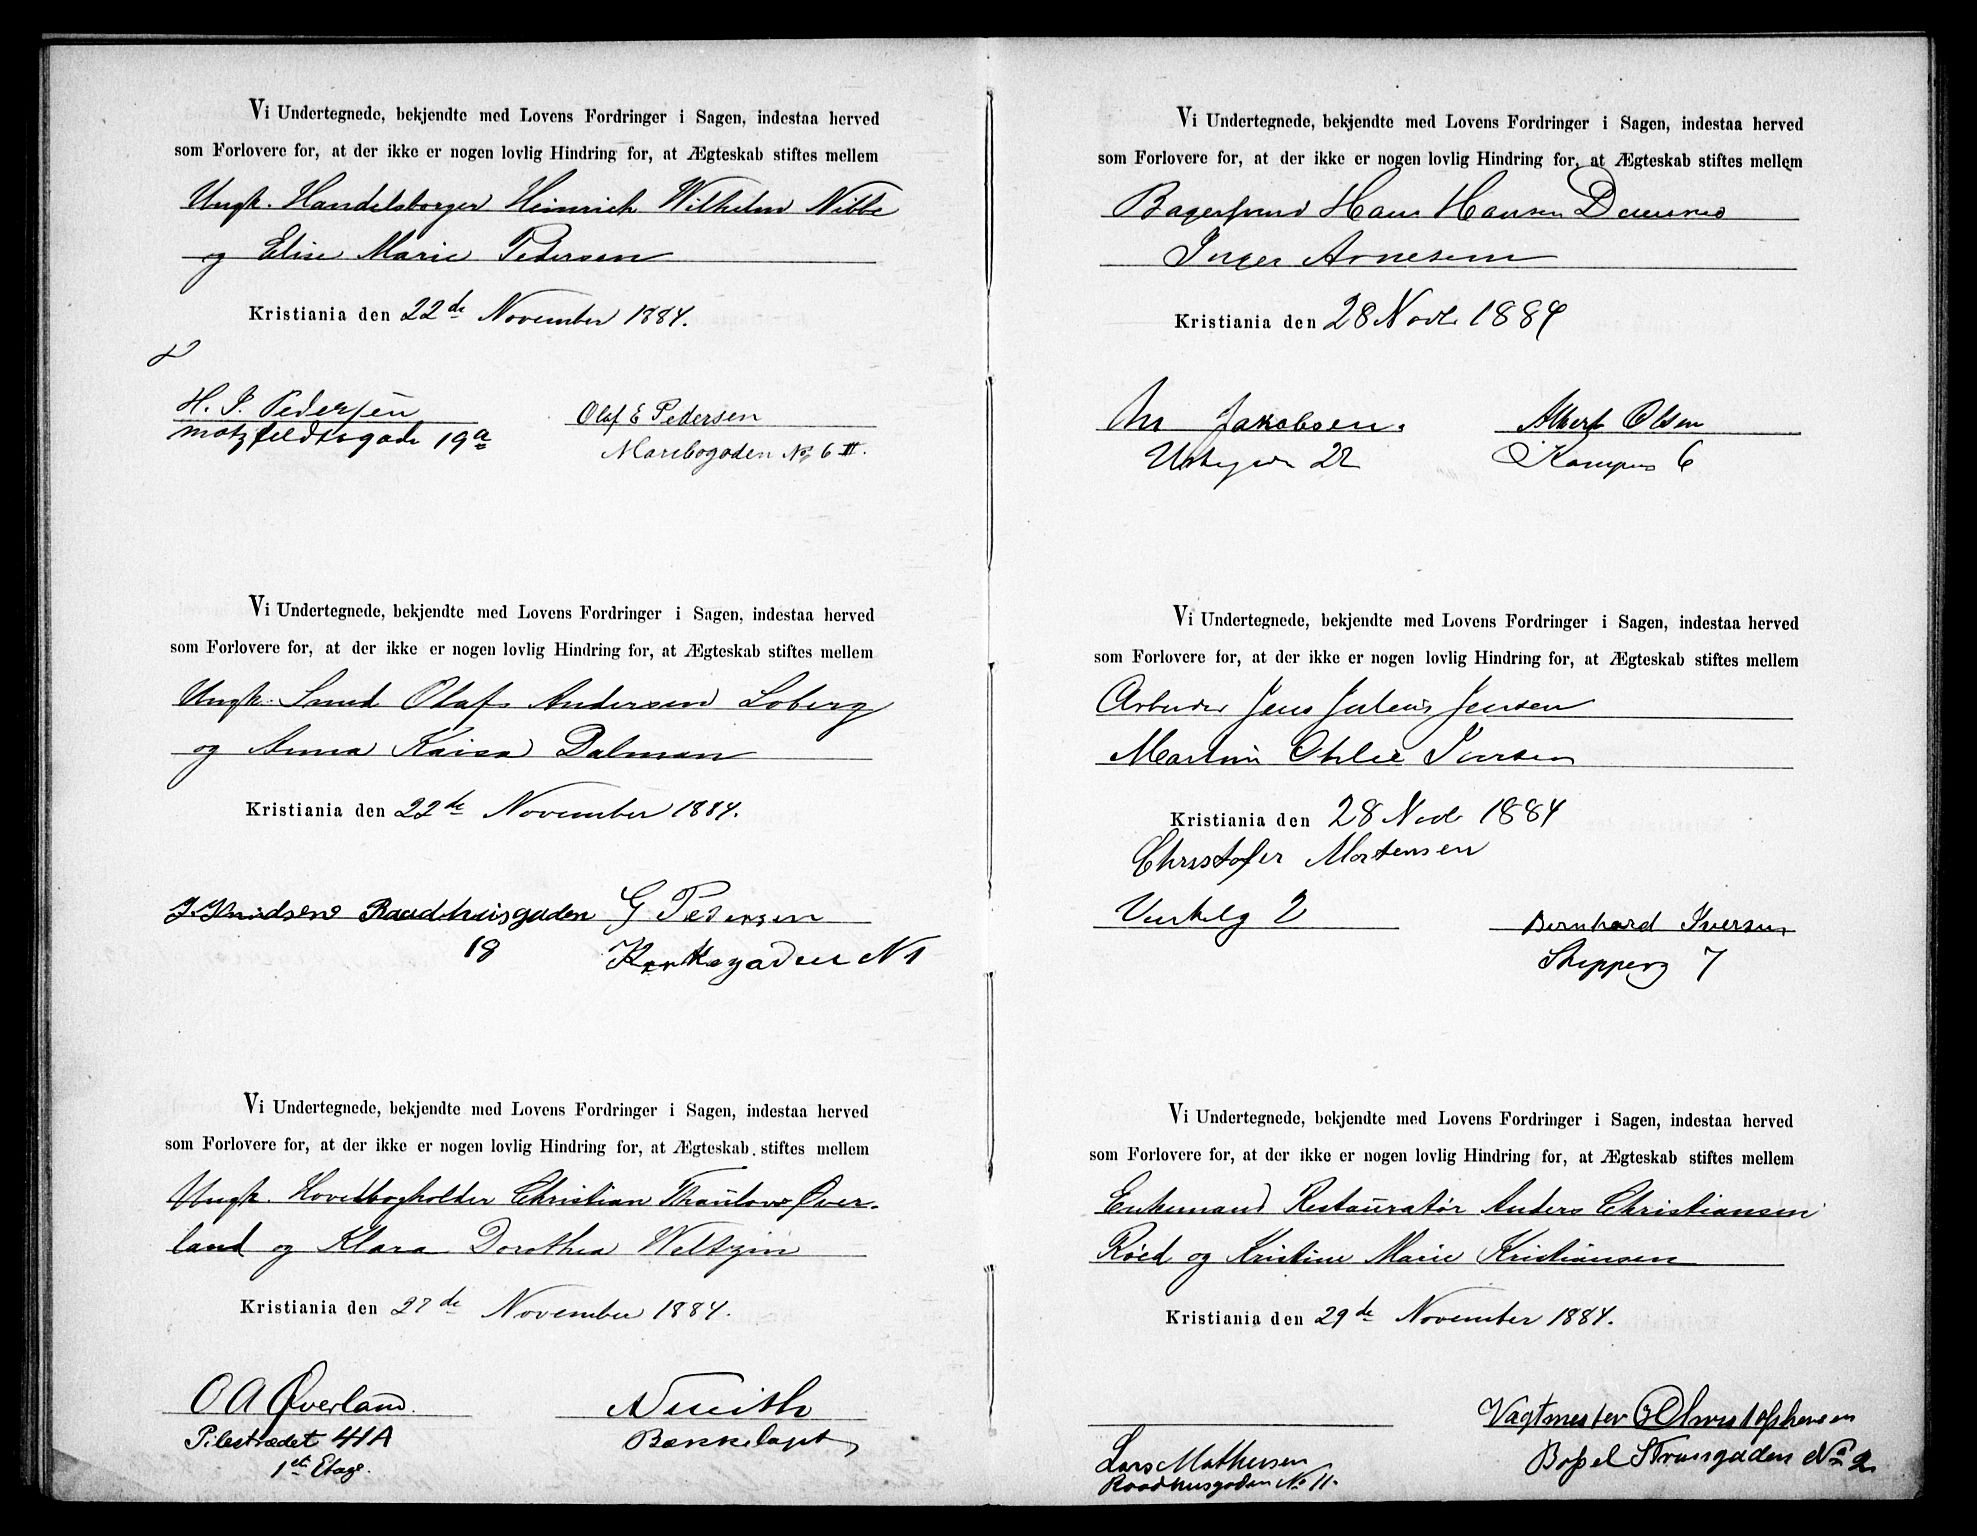 Vi Undertegnede, bekjendte med Lovens Fordringer i Sagen, indestaa herved
som Forlovere for, at der ikke er nogen lovlig Hindring for, at Ægteskab stiftes mellem
Ungk. Handelsborger Heinrich Wilhelm Nibbe
og Elise Marie Pedersen
Kristiania den 22de November 1884.
H. J. Pedersen
Motzfeldtsgade 19a
Olaf E Pedersen
Maribogaden No 6 II.
Vi Undertegnede, bekjendte med Lovens Fordringer i Sagen, indestaa herved
som Forlovere for, at der ikke er nogen lovlig Hindring for, at Ægteskab stiftes mellem
Ungk. Smed Olaf Andersen Loberg
og Anna Kaisa Dalman
Kristiania den 22de November 1884.
J. Knudsen Raadhusgaden
18
G Pedersen
Kirkegaden N 1
Vi Undertegnede, bekjendte med Lovens Fordringer i Sagen, indestaa herved
som Forlovere for, at der ikke er nogen lovlig Hindring for, at Ægteskab stiftes mellem
Ungk. Hovedbogholder Christian Thaulow Øver-
land og Klara Dorothea Weltzin
Kristiania den 27de November 1884.
O A Øverland.
Pilestrædet 41A
1ste Etage.
Bækkelaget
Vi Undertegnede, bekjendte med Lovens Fordringer i Sagen, indestaa herved
som Forlovere for, at der ikke er nogen lovlig Hindring for, at Ægteskab stiftes mellem
Bagersvend Hans Hansen
Inger Arnesen
Kristiania den 28 Novb 1884
Jakobsen.
22
Albert Olsen
Kampen 6
Vi Undertegnede, bekjendte med Lovens Fordringer i Sagen, indestaa herved
som Forlovere for, at der ikke er nogen lovlig Hindring for, at Ægteskab stiftes mellem
Arbeider Jens Julius Jensen
Martine Otelie Iversen
Kristiania den 28 Novb 1884
Christofer Mortensen
2
Bernhard Iversen
Skipperg 7
Vi Undertegnede, bekjendte med Lovens Fordringer i Sagen, indestaa herved
som Forlovere for, at der ikke er nogen lovlig Hindring for, at Ægteskab stiftes mellem
Enkemand Restauratør Anders Christiansen
Röed og Kristine Marie Kristiansen
Kristiania den 29de November 1884.
Lars Mathesen
Raadhusgaden No 11.
Vagtmester Christophersen
Bopel Strandgaden No 2